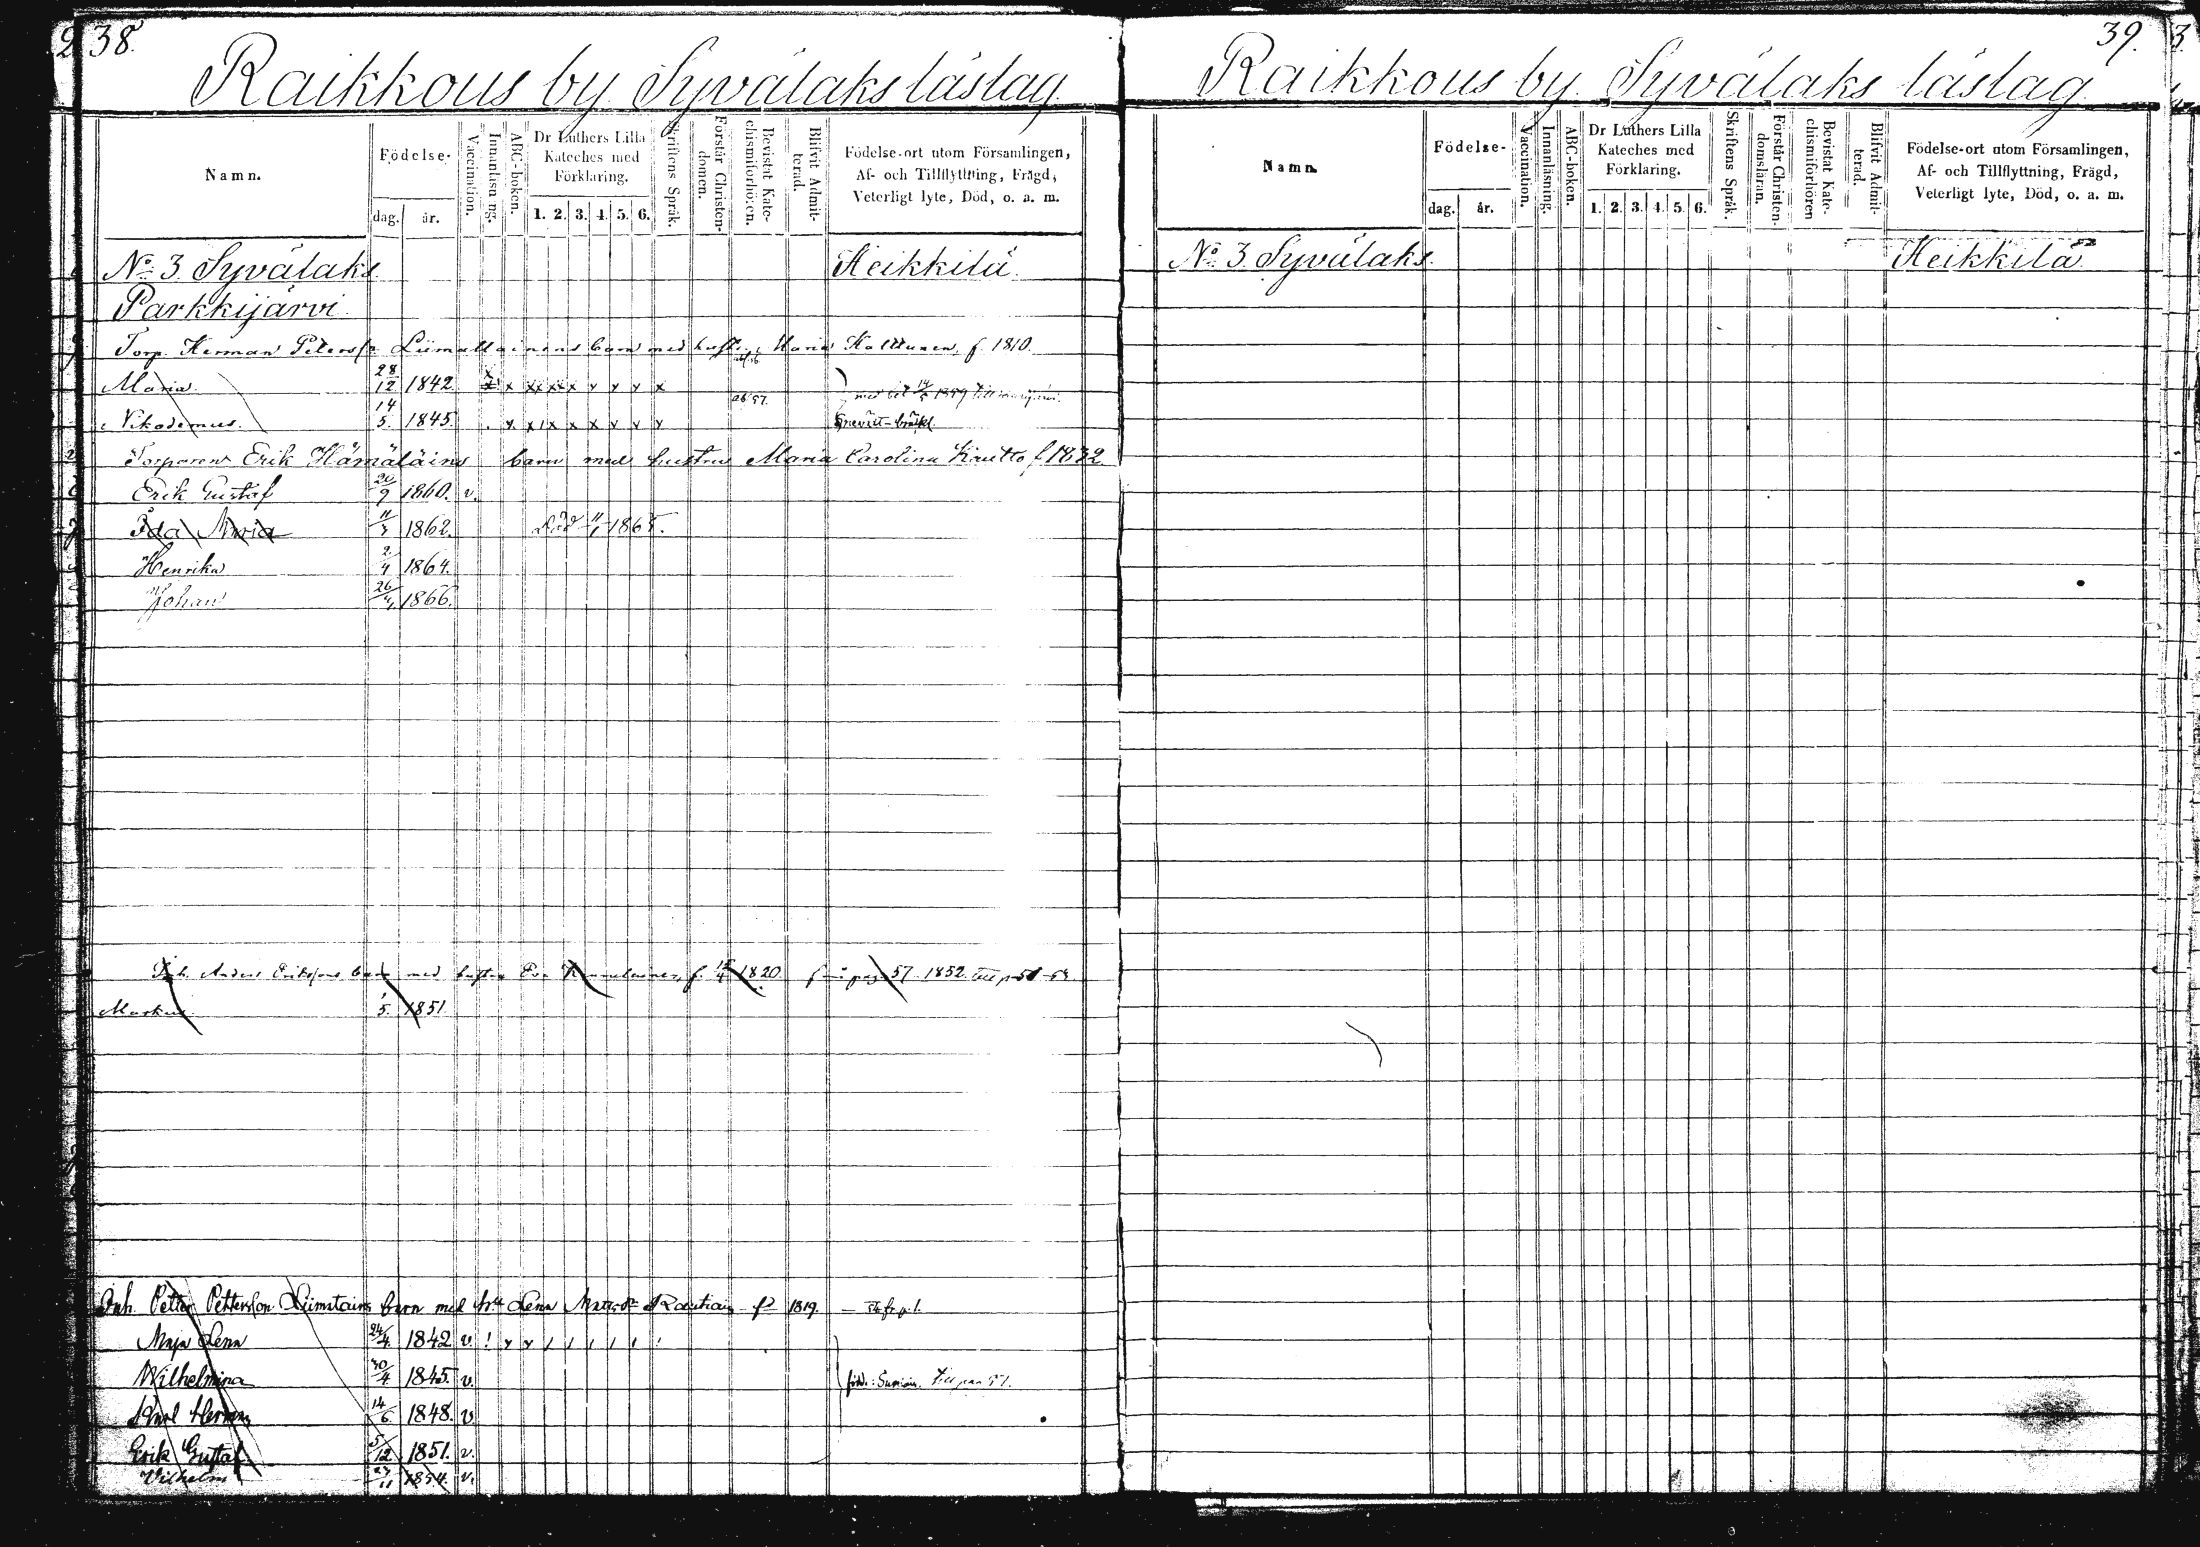 38.
Raikkous by Syvälaks läslag
Namn.
Födelse-
dag. år.
Vaccination.
Innanläsning.
ABC-boken.
Dr Luthers Lilla Kateches med Förklaring.
1. 2. 3. 4. 5. 6.
Skriftens Språk.
Förstår Christendomen.
Bevistat Katechismiförhören.
Blifvit Admitterad.
Födelse-ort utom Församlingen, Af- och Tillflyttning, Frägd, Veterligt lyte, Död, o. a. m.
No 3 Syvälaks. Heikkilä.
Parkkijärvi
Torp. Herman Peterss. Liimattainens barn med hustr. Maria f. 1810.
Maria 28/12 1842 x x x x x x
Nikodemus. 14/5 1845. x x x x
Torparen Erik Hämäläins barn med hustru Maria Carolina Kautto f 1832
Erik Gustaf 1860. v.
Ida Maria 1862. Död 11/1 1865.
Henrika 2/4 1864.
Johan 26/4 1866.
Inh. Anders Erikssons barn med hustru Eva f. 1820 pag. 57. 1852
Markus 1/5 1851
Inh. Petter Pettersson Liimatains barn med h:u Lena Rautiain f. 1819.
Maja Lena 24/4 1842 v.
Wilhelmina 30/4 1845. v.
Karl Herman 14/6 1848. v
Erik Gustaf 5/12 1851. v.
Vilhelm 1854. v.
39.
Raikkous by. Syvälaks läslag
Namn.
Födelse-
dag. år.
Vaccination.
Innanläsning.
ABC-boken.
Dr Luthers Lilla Kateches med Förklaring.
1. 2. 3. 4. 5. 6.
Skriftens Språk.
Förstår Christendomsläran.
Bevistat Katechismiförhören
Blifvit Admitterad.
Födelse-ort utom Församlingen, Af- och Tillflyttning, Frägd, Veterligt lyte, Död, o. a. m.
No 3. Syvälaks. Heikkilä